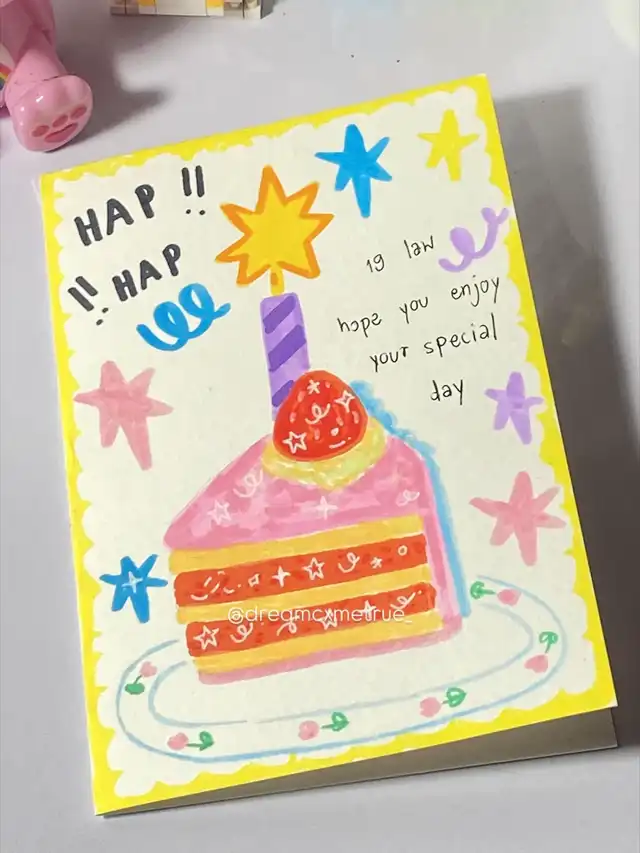 HAP !!
!! HAP
19 law
hope you enjoy
your special
day
@dreamcxmetrue_